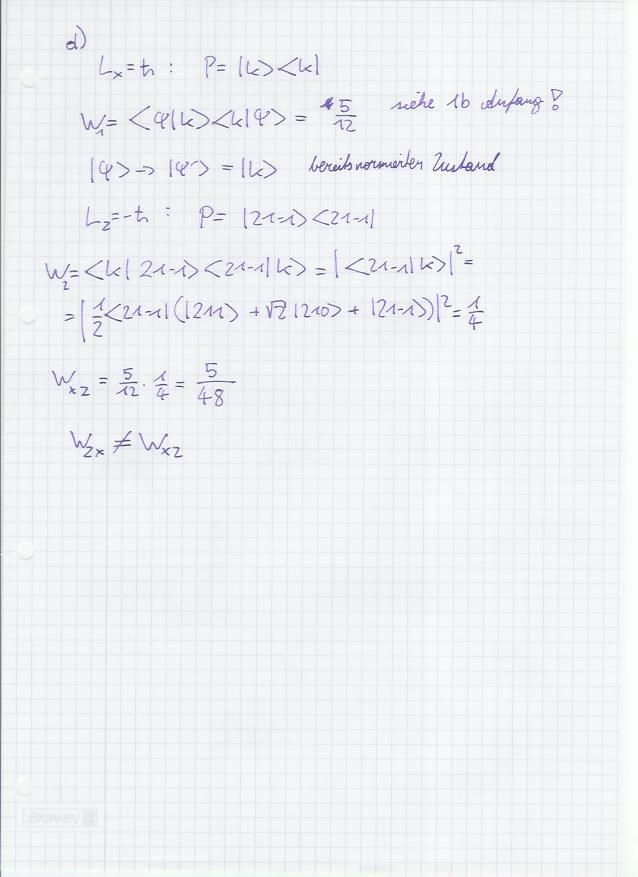 d)
L_x = ħ : P = |k><k|
W_1 = <φ|k><k|φ> = 5/12 siehe 1b Anfang!
|φ> -> |φ'> = |k> bereits normierter Zustand
L_z = -ħ : P = |21-1><21-1|
W_2 = <k|21-1><21-1|k> = |<21-1|k>|² =
= |1/2 <21-1|(|211> + √2 |210> + |21-1>)|² = 1/4
W_xz = 5/12 · 1/4 = 5/48
W_zx ≠ W_xz
BRUNNEN